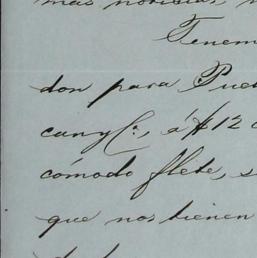 mas noticias,
Tenem
don para Pue
can y Ca., á $12
cómodo flete, s
que nos tienen